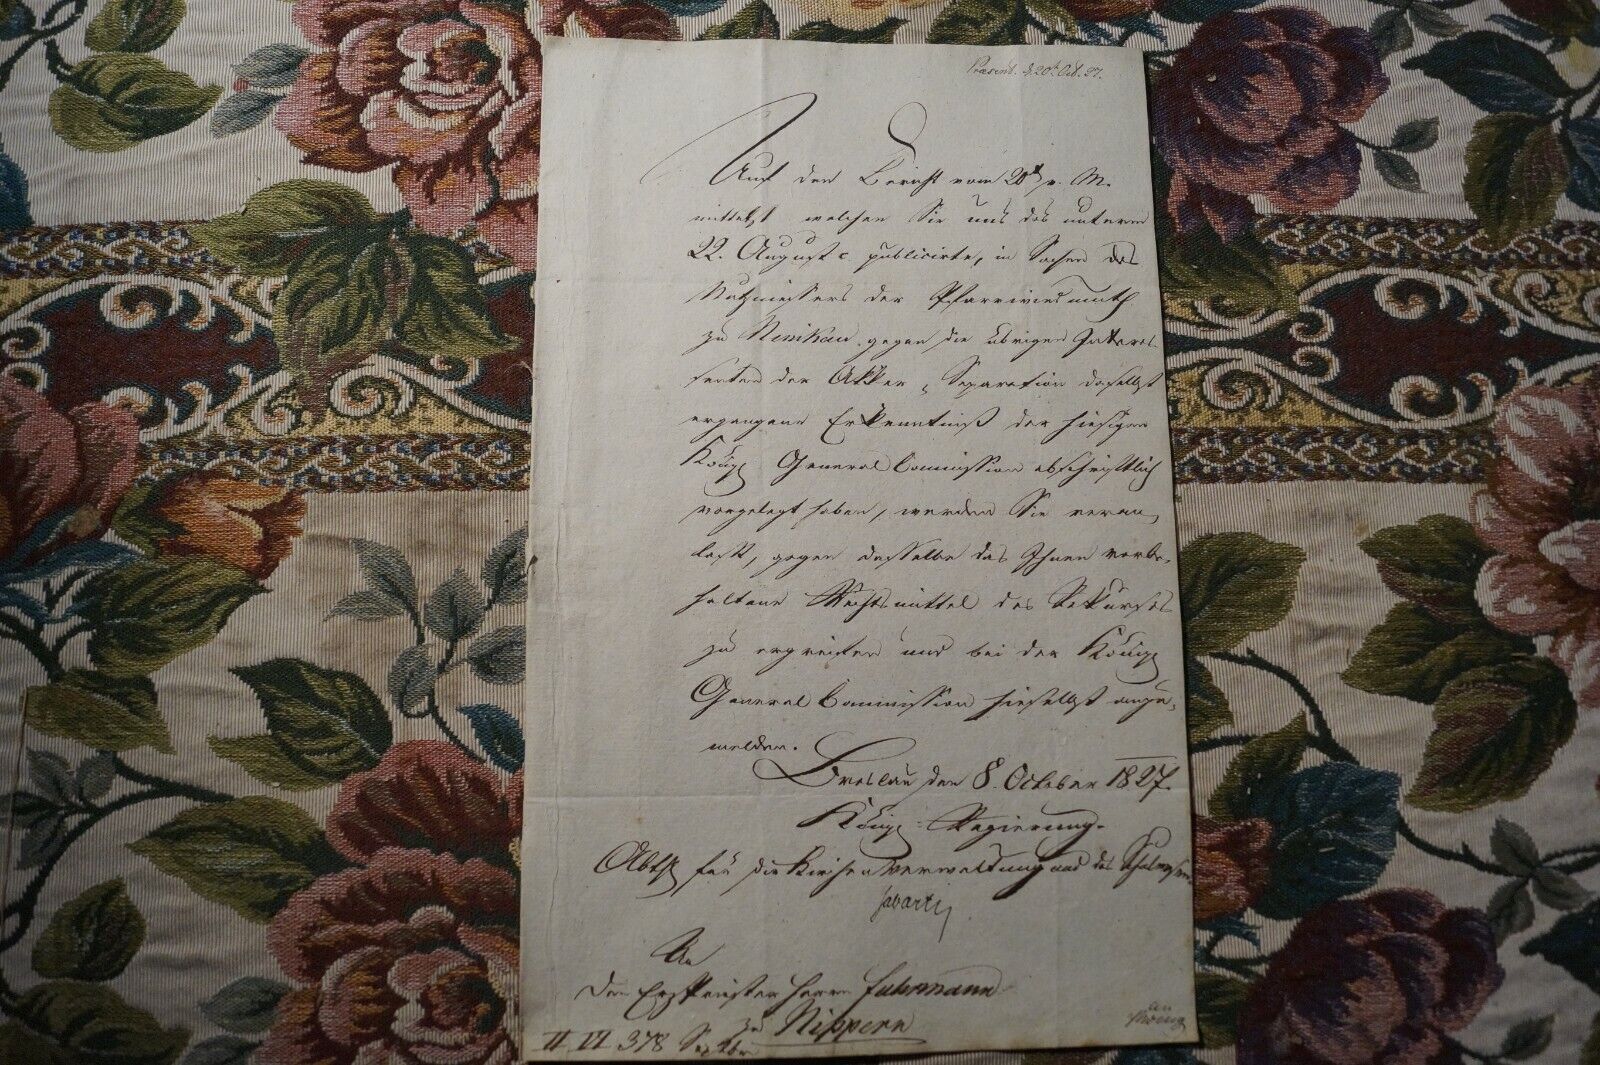 Praesent. d. 20t. Oct. 27.
Auf den Bericht vom 20t v. M.
mittelst welchen Sie uns das unterm
22. August c. publicirte, in Sachen des
Nutznießers der Pfarrwiedmuth
zu Nimkau gegen die übrigen Interes-
senten der Acker-Separation daselbst
ergangene Erkenntniß der hiesigen
Königl. General Commission abschriftlich
vorgelegt haben, werden Sie veran-
laßt, gegen dasselbe das Ihnen vorbe-
haltene Rechtsmittel des Rekurses
zu ergreifen und bei der Königl.
General Commission hieselbst anzu-
melden.
Breslau den 8. October 1827.
Königl. Regierung.
Abth. für die Kirchenverwaltung und das Schulwesen.
An
den Erzpriester Herrn Fuhrmann
zu Nippern
II VI 378 Septbr